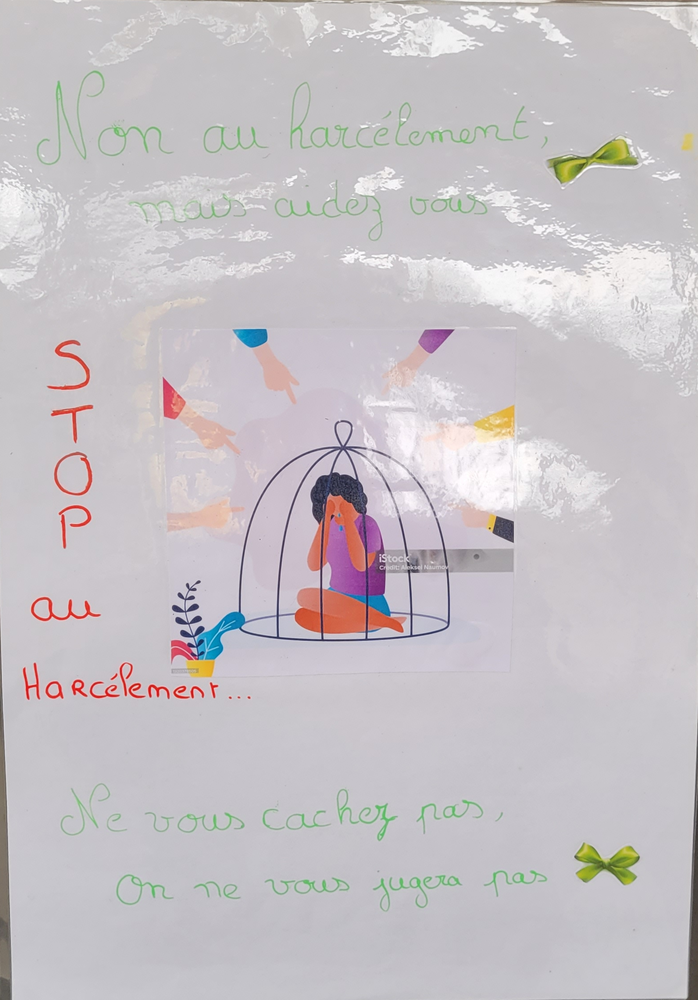 Non au harcélement,
mais aidez vous
S
T
O
P
au
Harcélement...
iStock
Credit: Aleksei Naumov
Ne vous cachez pas,
On ne vous jugera pas